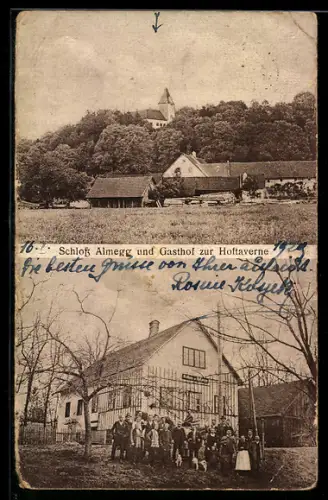 16. 2. 1929
Schloß Almegg und Gasthof zur Hoftaverne
Die besten Grüsse von Ihrer aufricht.
Rosine